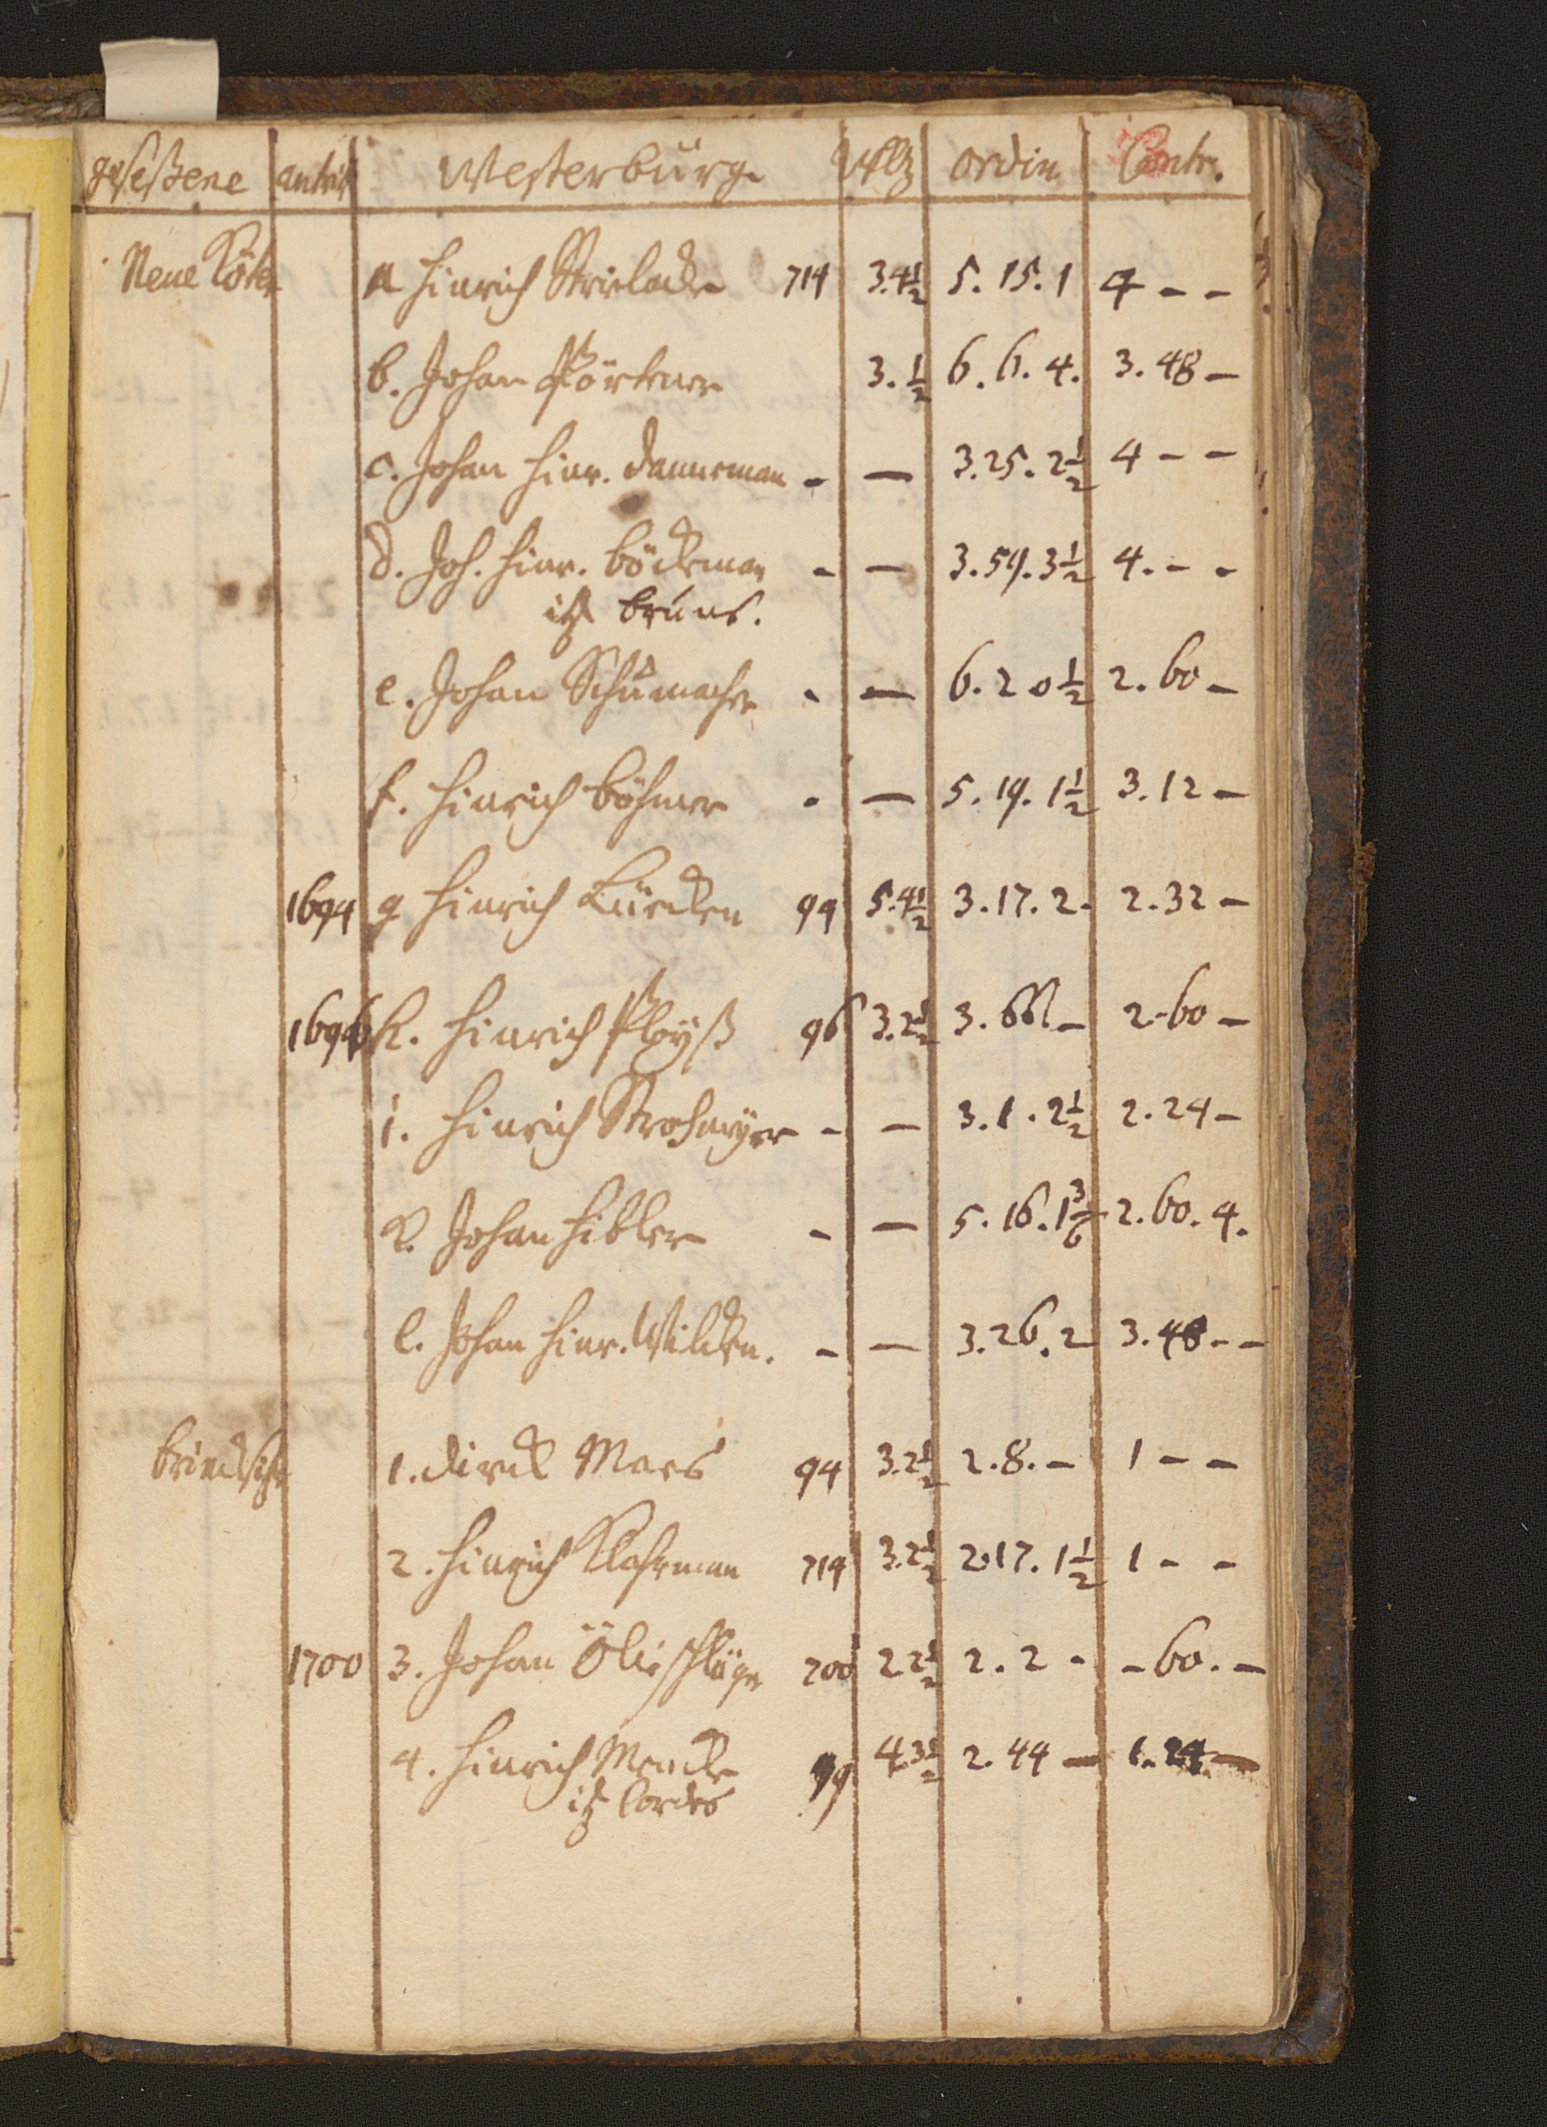 geseßene antrit Westerburg ordin Contr.
Neue Köter a Hinrich Strielacke 714 3.4½ 5.15.1 4 – –
b. Johan Pförtener 3.½ 6.6.4. 3.48 –
c. Johan Hinr. Danneman – – 3.25.2½ 4 – –
d. Joh. Hinr. Böckman – – 3.59.3½ 4. – –
itz Bruns.
e. Johan Schumacher – – 6.20½ 2.60 –
f. Hinrich Böhmer – – 5.19.1½ 3.12 –
1694 g Hinrich Lürcken 99 5.4½ 3.17.2. 2.32 –
1696 h. Hinrich Ployß 96 3.2½ 3. – 2-60 –
i. Hinrich Strohmyer – – 3.1.2½ 2.24 –
k. Johan Hibler – – 5.16.1 3/6 2.60.4.
l. Johan Hinr. Wilcken. – – 3.26.2 3.48 – –
Brincksitzer 1. Dirck Maes 94 3.2½ 2.8. – 1 – –
2. Hinrich Klohrman 719 3.2½ 2.17.1½ 1 – –
1700 3. Johan Ölieschläger 700 2 2½ 2.2 - – 60. –
4. Hinrich Mencke 99 4.3½ 2.44 – 1.24. –
itz Cordes